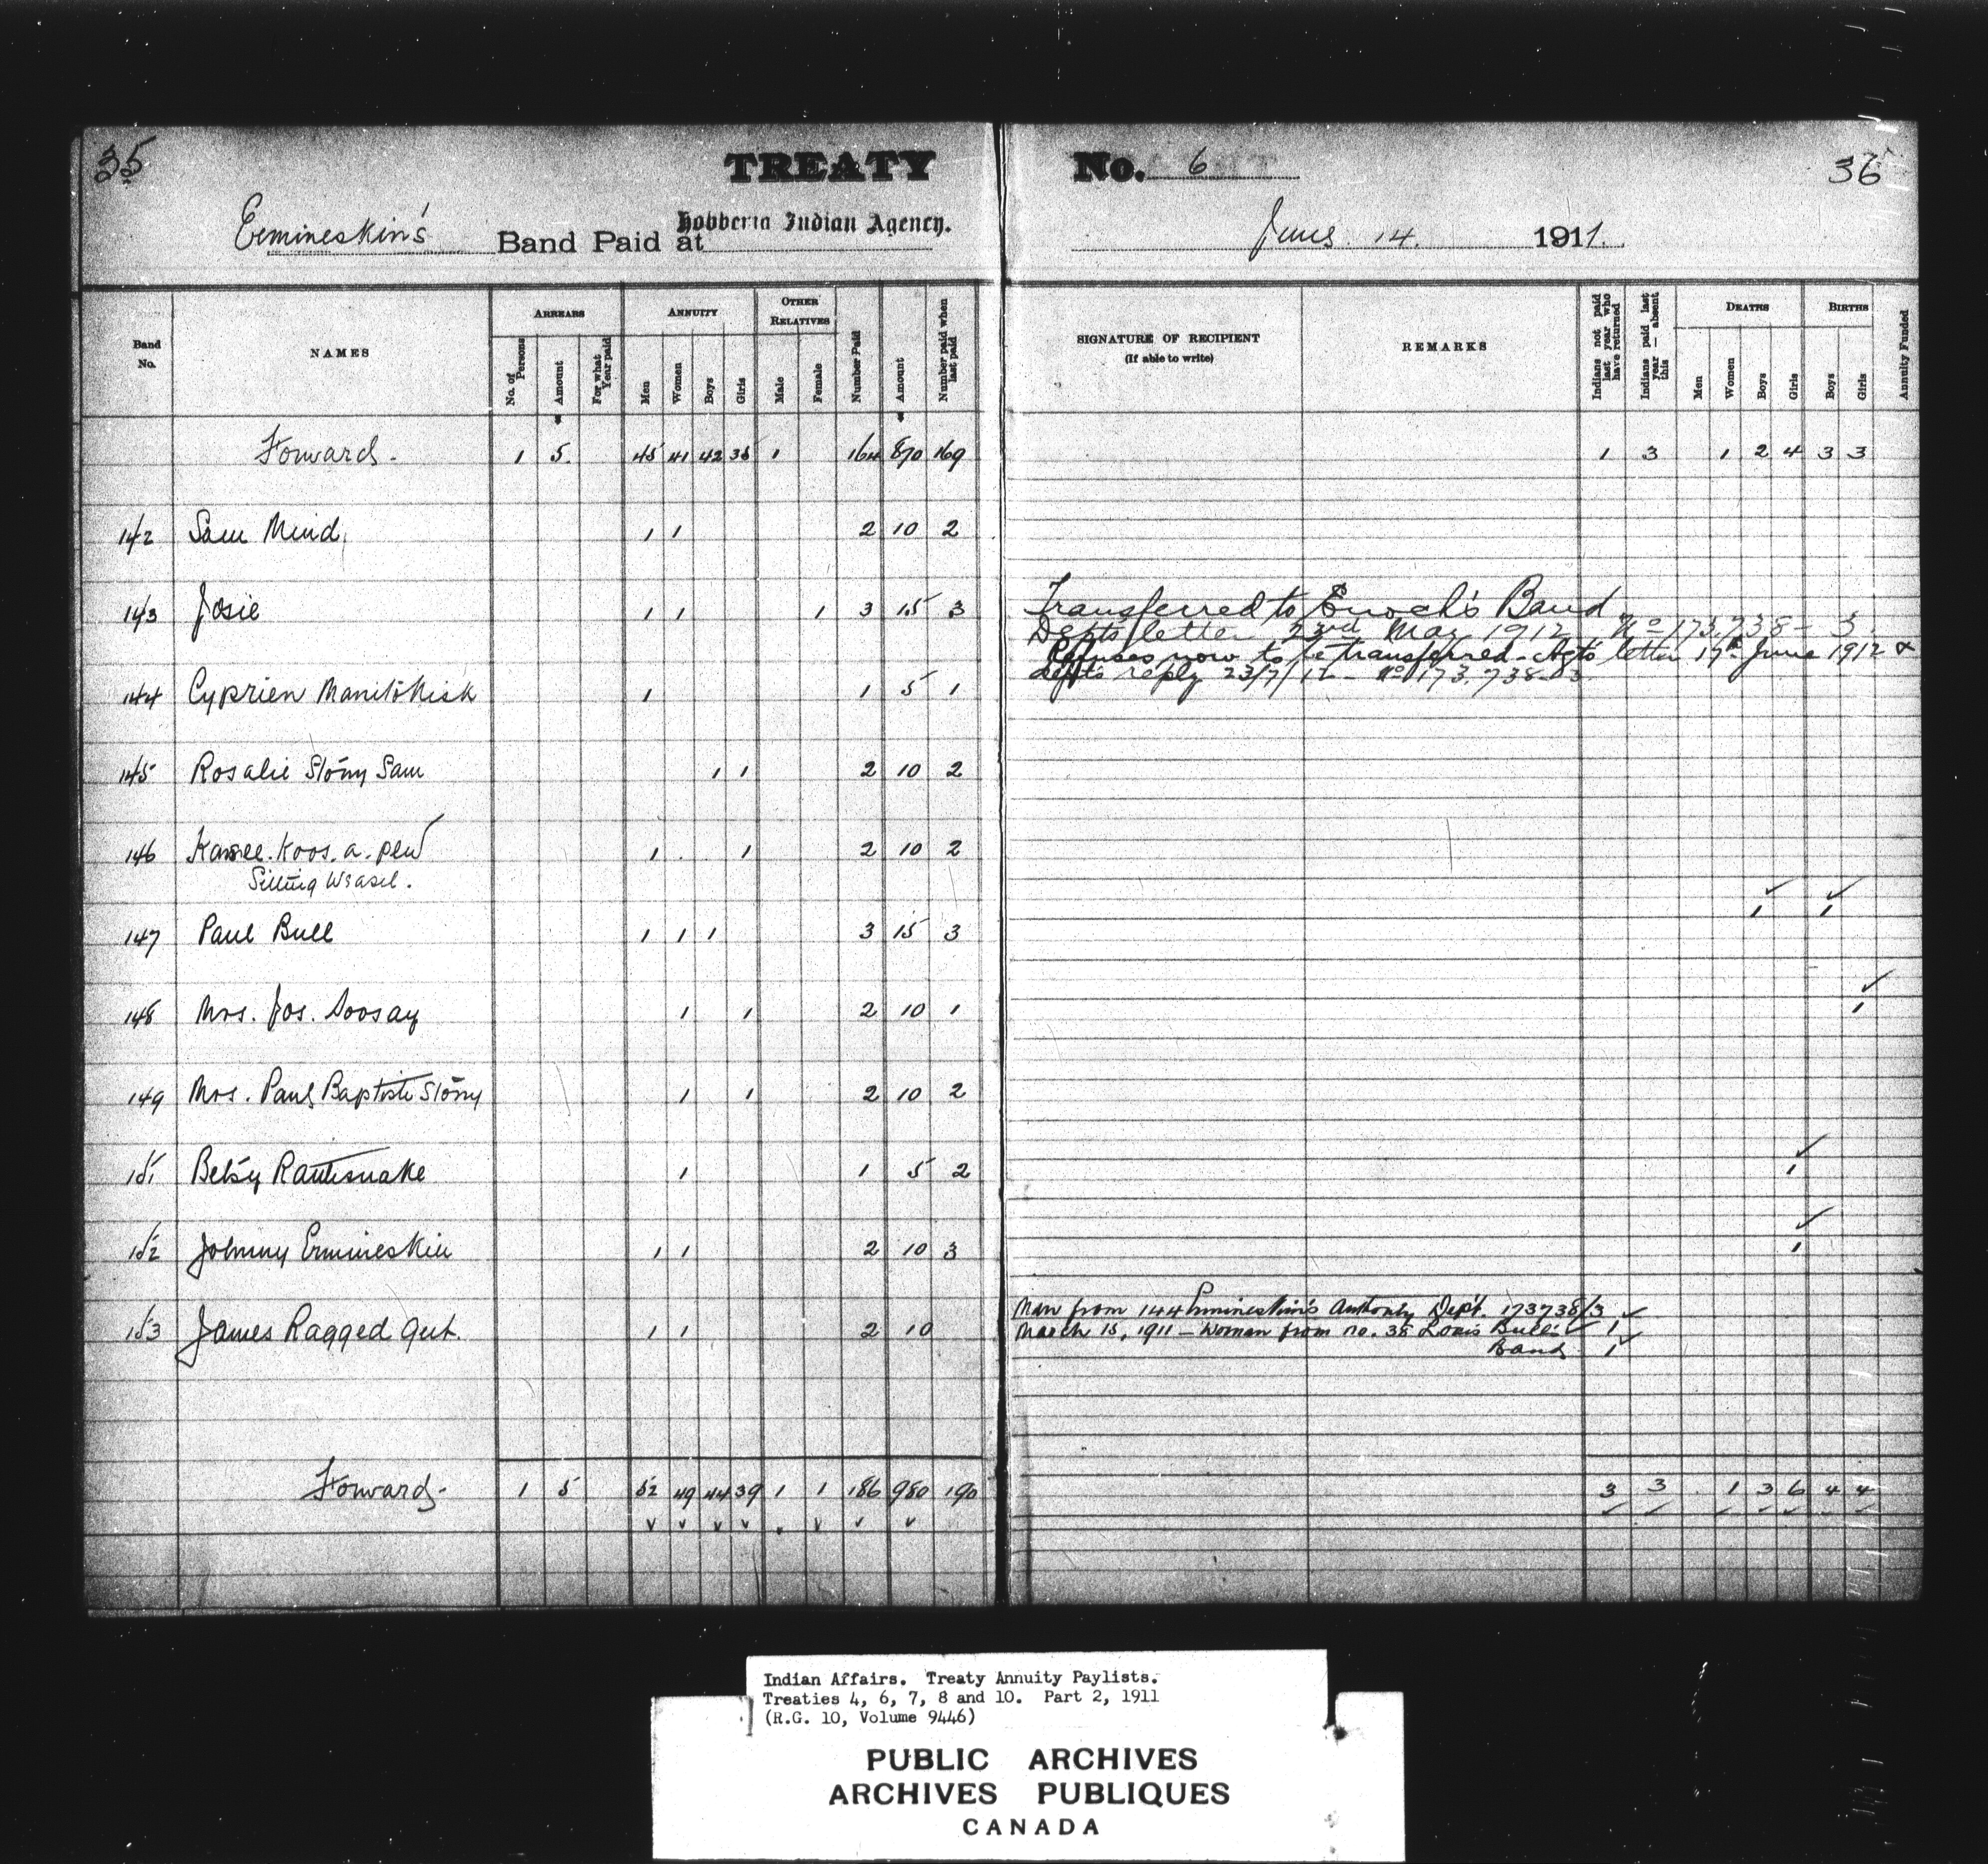 35
TREATY No. 6
36
Ermineskin's Band Paid at Hobbema Indian Agency. June 14. 1911.
Band No.
NAMES
ARREARS
No. of Persons
Amount
For what Year paid
ANNUITY
Men
Women
Boys
Girls
OTHER RELATIVES
Male
Female
Number Paid
Amount
Number paid when last paid
SIGNATURE OF RECIPIENT
(If able to write)
REMARKS
Indians not paid last year who have returned
Indians paid last year — absent this
DEATHS
Men
Women
Boys
Girls
BIRTHS
Boys
Girls
Annuity Funded
Forward - 1 5. 45 41 42 35 1 164 870 169 1 3 1 2 4 3 3
142 Sam Mind. 1 1 2 10 2
143 Josie 1 1 1 3 15 3
Transferred to Enoch's Band
Depts letter 23rd May 1912 No 173,738 - 3.
Refuses now to be transferred - Agts letter 17th June 1912 &
depts reply 23/7/12 - No 173,738-3
144 Cyprien Manitokisk 1 1 5 1
145 Rosalie Stony Sam 1 1 2 10 2
146 Koos. a. pew 1 1 2 10 2
Sitting Weasel.
147 Paul Bull 1 1 1 3 15 3 1 1
148 Mrs. Jos. Soosay 1 1 2 10 1 1
149 Mrs. Paul Baptiste Stony 1 1 2 10 2
151 Betsy Rattlesnake 1 1 5 2 1
152 Johnny Ermineskin 1 1 2 10 3 1
153 James Ragged Gut. 1 1 2 10
Man from 144 Ermineskin's Authority Dept. 173738/3 1
March 15, 1911 - Woman from no. 38 Louis Bull's
Band 1
Forward - 1 5 52 49 44 39 1 1 186 980 190 3 3 1 3 6 4 4
Indian Affairs. Treaty Annuity Paylists.
Treaties 4, 6, 7, 8 and 10. Part 2, 1911
(R.G. 10, Volume 9446)
PUBLIC ARCHIVES
ARCHIVES PUBLIQUES
CANADA